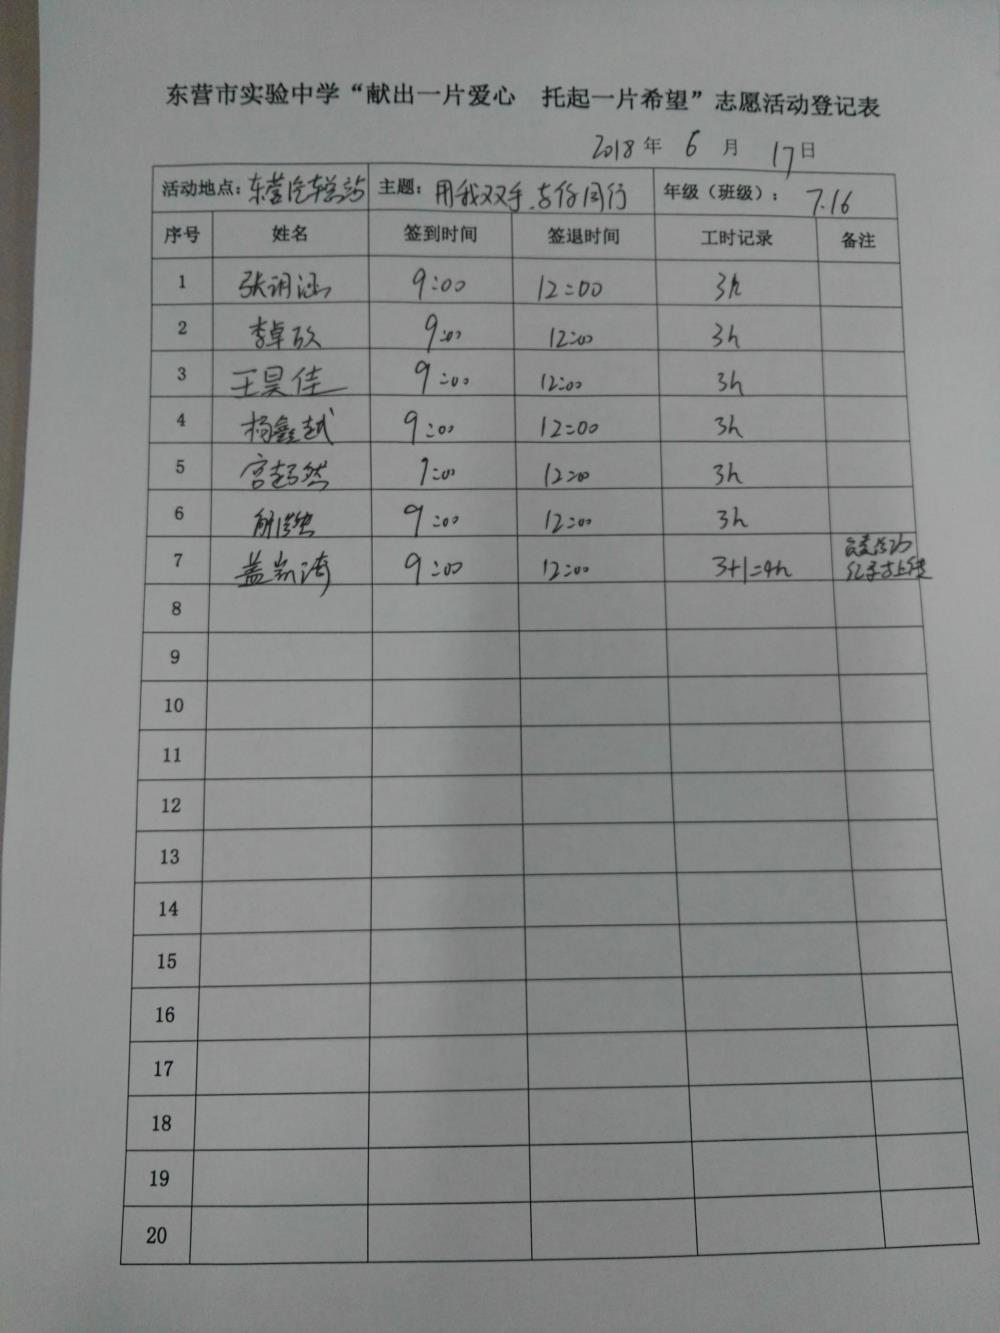 东营市实验中学“献出一片爱心 托起一片希望”志愿活动登记表
2018年 6 月 17日
活动地点：东营汽车总站 主题：用我双手，与你同行 年级（班级）：7.16
序号 姓名 签到时间 签退时间 工时记录 备注
1 张玥涵 9:00 12:00 3h
2 李卓欣 9:00 12:00 3h
3 王昊佳 9:00 12:00 3h
4 杨鑫越 9:00 12:00 3h
5 宫超然 9:00 12:00 3h
6 9:00 12:00 3h
7 盖凯涛 9:00 12:00 3+1=4h 负责活动
纪录与上传
8
9
10
11
12
13
14
15
16
17
18
19
20